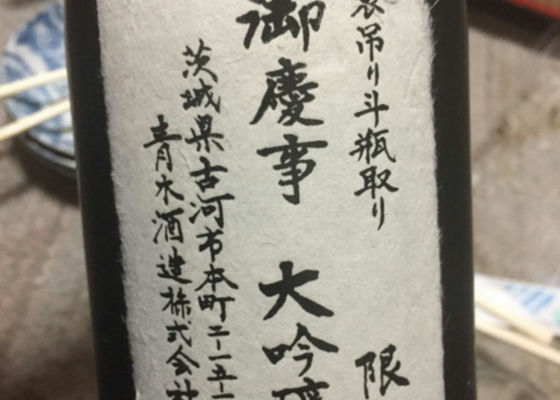 袋吊り斗瓶取り 限
御慶事 大吟醸
茨城県古河市本町二ー一五ー
青木酒造株式会社